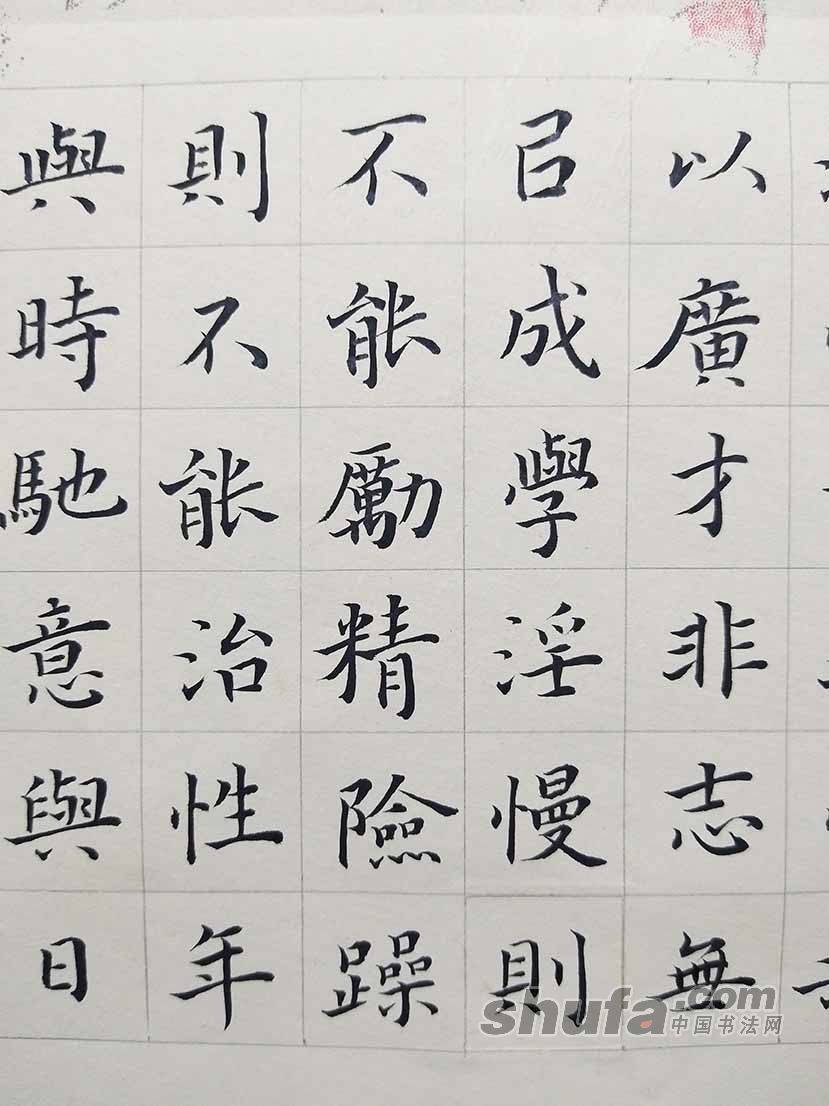 以廣才非志無
㠯成學淫慢則
不能勵精險躁
則不能治性年
與時馳意與日
shufa.com
中国书法网